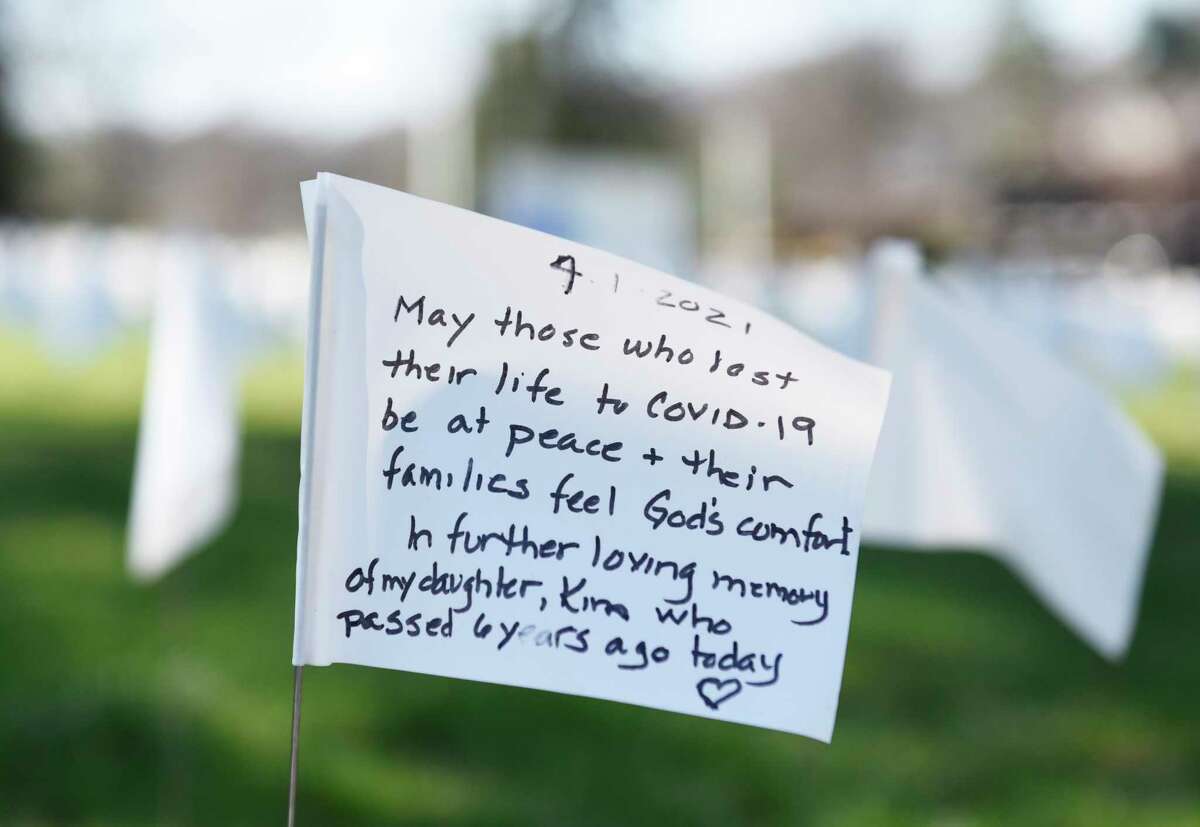 4.1.2021
May those who lost
their life to COVID-19
be at peace + their
families feel God's comfort
In further loving memory
of my daughter, Kim who
passed 6 years ago today
♡